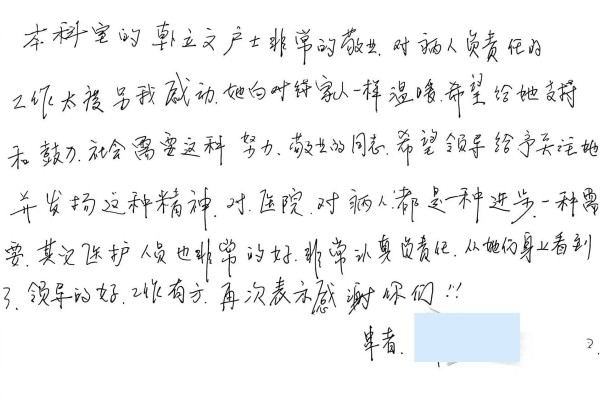 本科室的韩立文户士非常的敬业.对病人负责任的
工作太度另我感动.她向对待家人一样温暖.希望给她支持
和鼓力.社会需要这种努力、敬业的同志.希望领导给予关注她
并发扬这种精神.对医院.对病人都是一种进步.一种需
要.其它医护人员也非常的好.非常认真负责任.从她们身上看到
了.领导的好.工作有方.再次表示感谢你们!!
患者.
2.